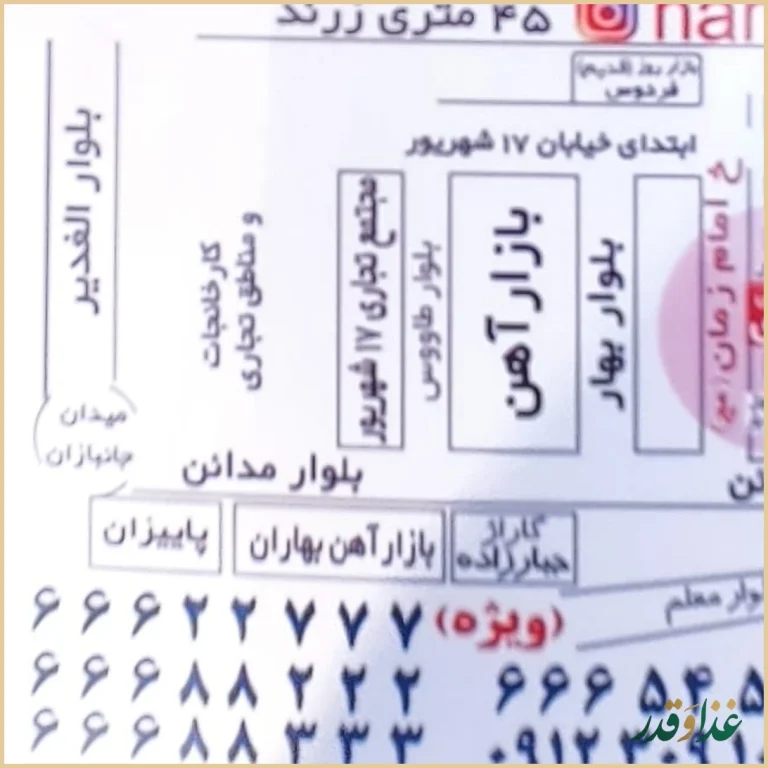 ۴۵ متری زرند
بازار روز (قدیم)
فردوس
ابتدای خیابان ۱۷ شهریور
خ امام زمان (عج)
بلوار بهار
بازار آهن
بلوار طاووس
مجتمع تجاری ۱۷ شهریور
کارخانجات
و مناطق تجاری
بلوار الغدیر
میدان
جانبازان
بلوار مدائن
گاراژ
جبارزاده
بازار آهن بهاران
پاییزان
معلم
(ویژه) ۶۶۶۲۲۷۷۷
۶۶۶۸۸۲۲۲
۶۶۶۵۴۵
۶۶۶۸۸۳۳۳
۰۹۱۲
غذا و قدر